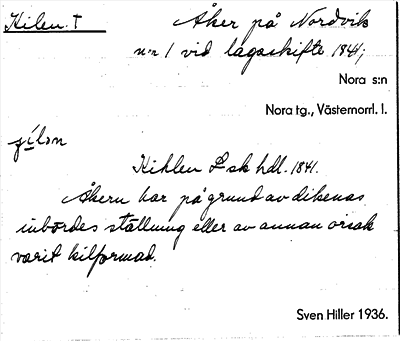 Kilen. †
Åker på Nordvik
n:r 1 vid lagaskifte 1841;
Nora s:n
Nora tg., Västernorrl. l.
Kihlen L sk hdl. 1841.
Åkern har på grund av dikenas
inbördes ställning eller av annan orsak
varit kilformad.
Sven Hiller 1936.